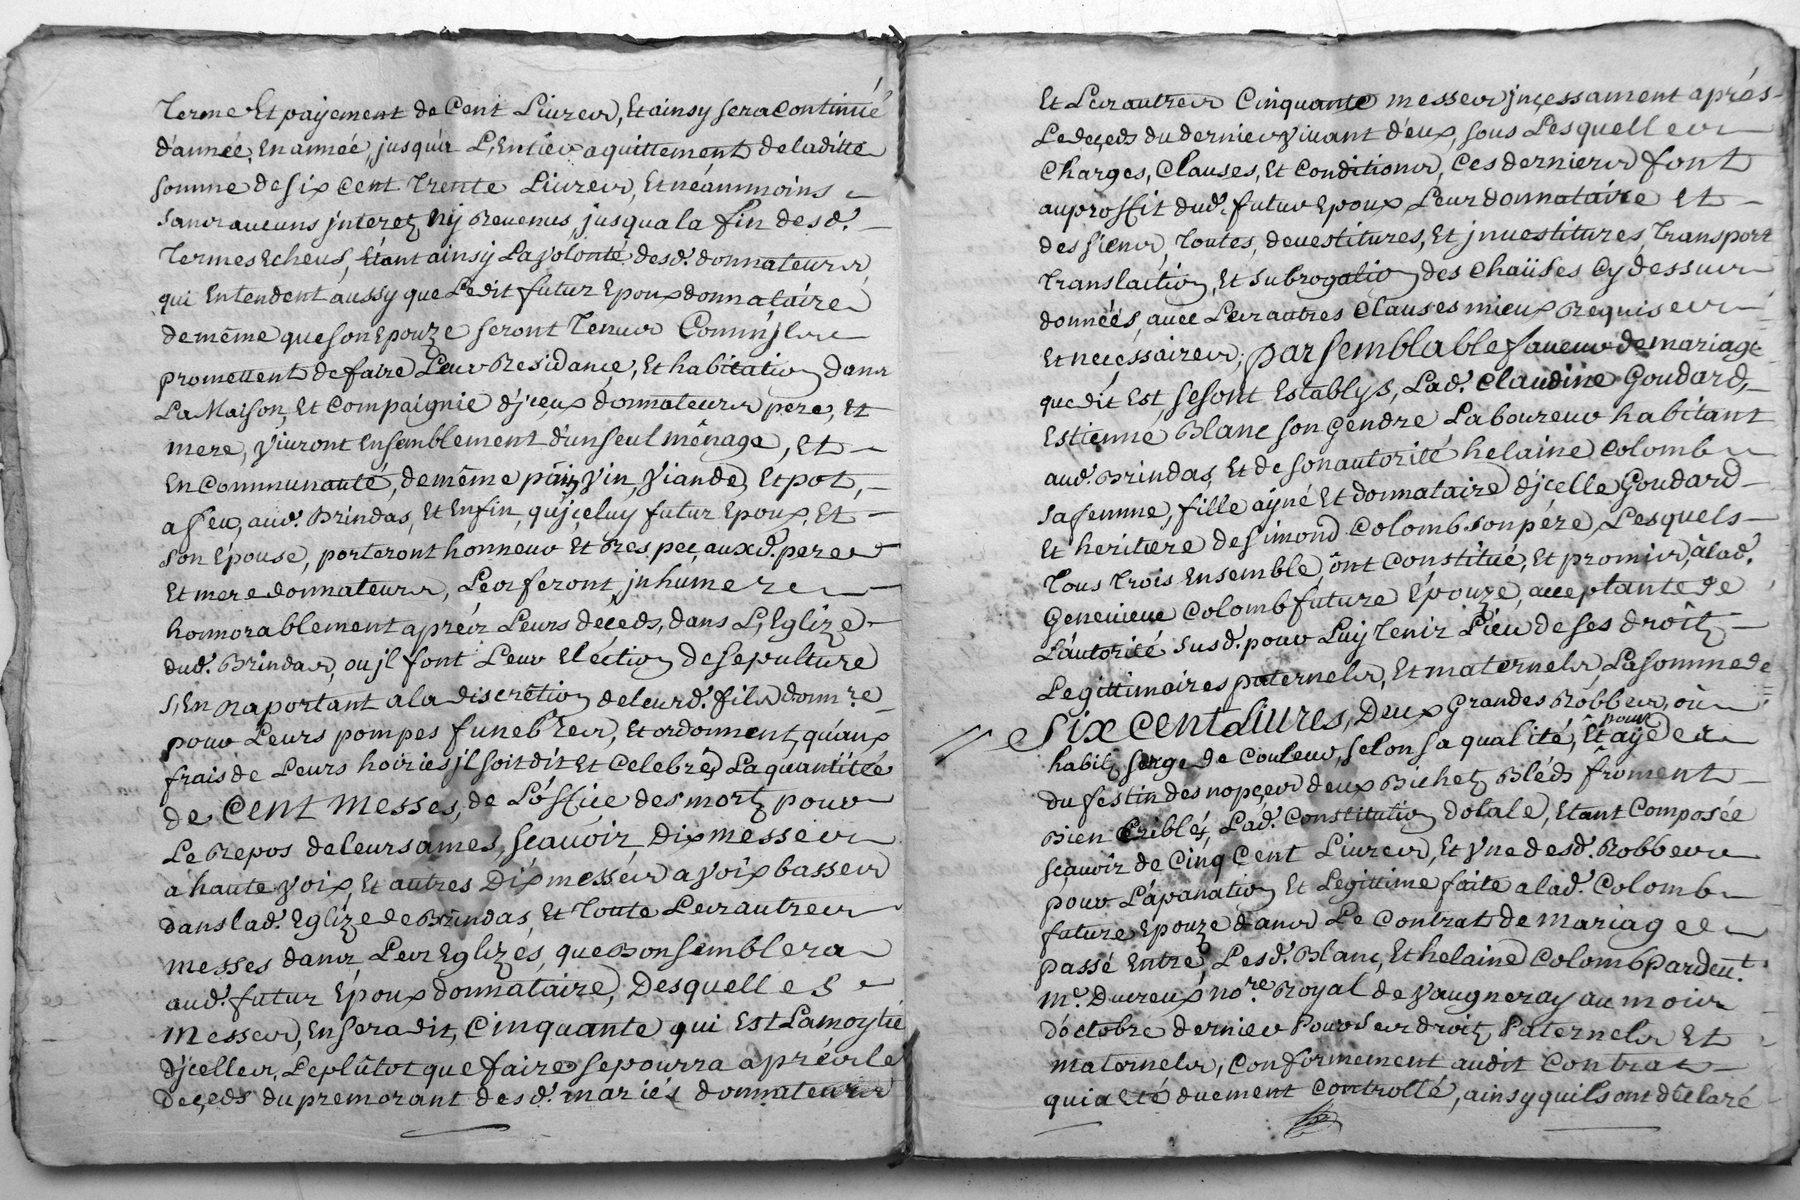 Terme Et payement de Cent Livres, Et ainsy sera Continué
d'année, En année, jusqu'à L'Entier aquittement de laditte
somme de six Cent Trente Livres, Et néanmmoins
sans aucuns jnterez, nÿ Revenus, jusqua la fin desd.
Termes Echeus, Etant ainsy La volonté desd. donnateurs,
qui Entendent aussy que Ledit futur Epoux donnataire
de même que son Epouze seront Tenus Comm'jls
promettent de faire Leur Residance, Et habitation dans
La Maison, Et Compaignie d'jceux donnateurs pere, Et
mere, vivront Ensemblement d'un seul ménage, Et
En Communauté, de même pain, vin, viande, Et pot,
a feu, aud. Brindas, Et Enfin, qu'jceluy futur Epoux, Et
son Epouse, porteront honneur Et Respec, auxd. pere
Et mere donnateurs, Les feront jnhumer
honnorablement aprés Leurs deçeds, dans L'Eglize
dud. Brindas, ou jl font Leur Eléction de sepulture
s'En Raportant a la discretion de leurd. fils donn.re
pour Leurs pompes funebres, Et ordonnent, qu'aux
frais de Leurs hoiries jl soit dit Et Celebré, La quantitée
de Cent Messes, de L'óffice des mortz pour
Le Repos de leurs ames, sçauoir, Dix messes
a haute voix, Et autres Dix messes a voix basses
dans lad. Eglize de Brindas, Et Toute Les autres
messes dans Les Eglizés, que Bon semblera
aud. futur Epoux donnataire, Desquelles
Messes, En sera dit, Cinquante qui Est La moytié
d'jcelles, Le plûtot que faire se pourra aprés le
Deçeds du premorant desd. mariés donnateurs
Et Les autres Cinquante messes jnçessament aprés
Le deçeds du dernier vivant d'eux, sous Lesquelles
Charges, Clauses, Et Conditions, Ces derniers font
au proffit dud. futur Epoux Leur donnataire Et
des siens, Toutes, deuestitures, Et jnuestitures, Transport
Translaction, Et subrogation des Chaüses Cy dessus
donnéés, auec Les autres Clauses mieux Requises
Et neçessaires; par semblable faueur de mariage
que dit Est, se sont Establys, Lad. Claudine Goudard,
Estienne Blanc son Gendre Laboureur habitant
aud. Brindas, Et de son autorité helaine Colomb
sa femme, fille aÿné Et donnataire d'jcelle Goudard
Et heritiere de simond Colomb son pére, Lesquels
Tous Trois Ensemble, ônt Constitué, Et promis, à lad.
Genevieue Colomb future Epouze, acceptante de
L'autorité susd. pour Luy Tenir Lieu de ses droitz
Legittimaires paternels, Et maternels, La somme de
Six Cent Livres, Deux Grandes Robbes, où
habitz serge de Couleur, selon sa qualité, Et pour aÿde
du festin des nopçes deux Bichetz Bléds froment
Bien Criblés, Lad. Constitution dotale, Etant Composée
sçauoir de Cinq Cent Livres, Et vne desd. Robbes
pour L'apanation Et Legittime faite a lad. Colomb
future Epouze dans Le Contrat de mariage
passé Entre, Lesd. Blanc, Et helaine Colomb pardeu.t
M.e Ducreux no.re Royal de Vaugneray au mois
D'octobre dernier Pour Ses droitz Paternels Et
maternels, Conformement audit Contrat
qui a Eté duement Controllé, ainsy qu'ils ont déclaré